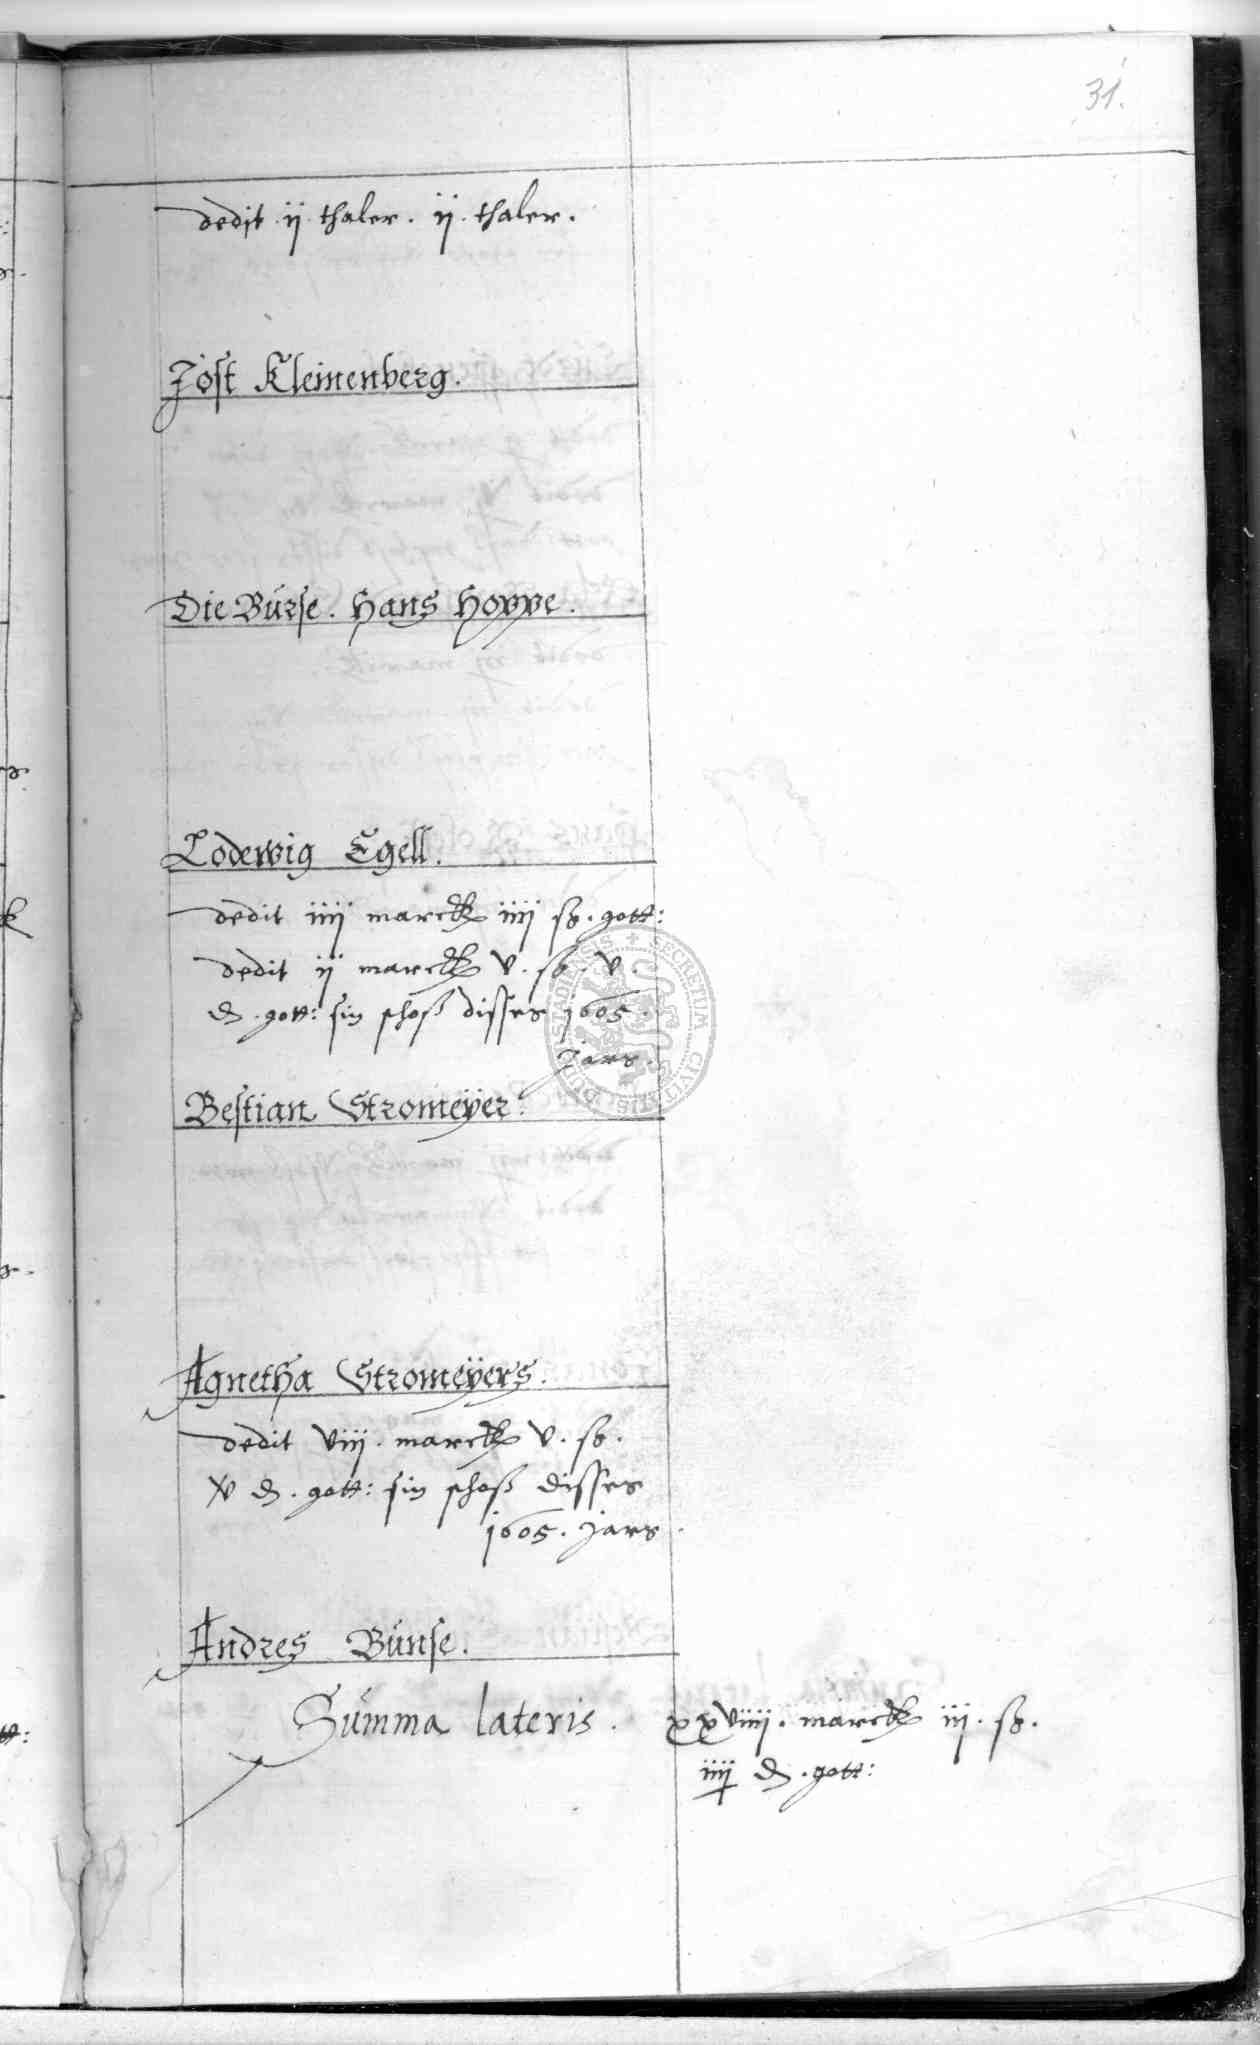 31.
dedit ij thaler. ij. thaler.
Jost Kleinenberg.
Die Bürse. Hans Hoppe.
Lodewig Egell.
dedit iiij marck iiij ß. gott:
dedit ij marck v. ß. v.
₰. gott: sin schoß disses 1605.
Jars.
Bestian Stromeÿer.
Agnetha Stromeÿers.
dedit viij. marck v. ß.
v ₰. gott: sin schoß disses
1605. Jars.
Andres Bünse.
Summa lateris. xxviiij. marck iij. ß.
iiij ₰. gott:
SECRETUM CIVITATIS DUDERSTADIENSIS